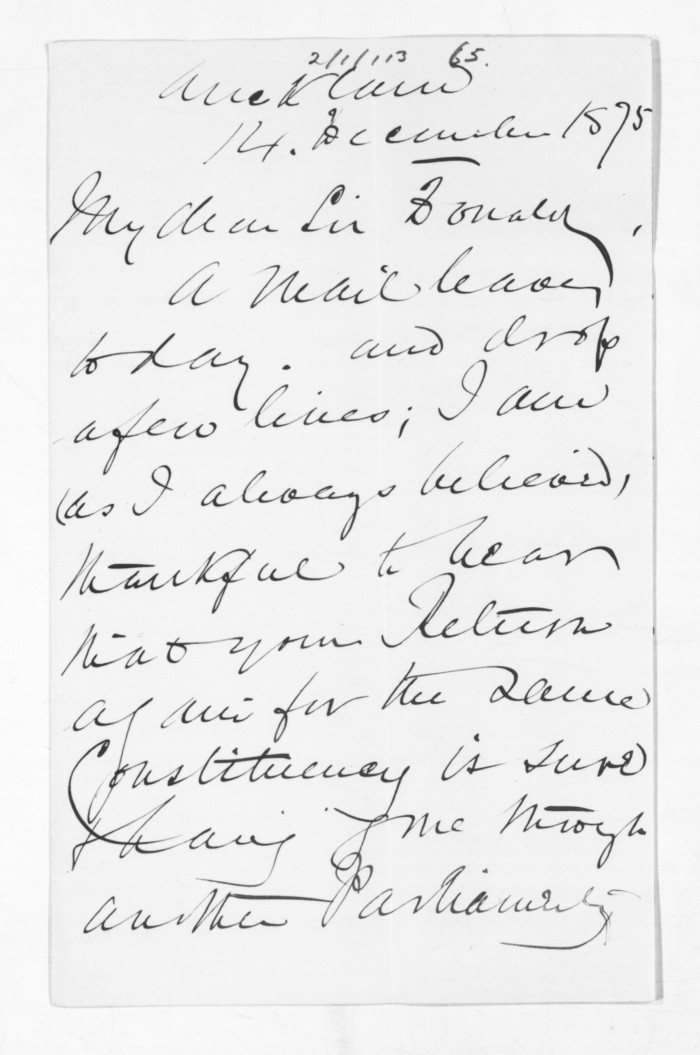 2/1/113 65.
Auckland
14. December 1875
My dear Sir Donald,
A Mail leaves
today. and drop
a few lines; I am
(as I always believed,
thankful to hear
that your Return
again for the same
Constituency is sure
& having gone through
another Parliamentary